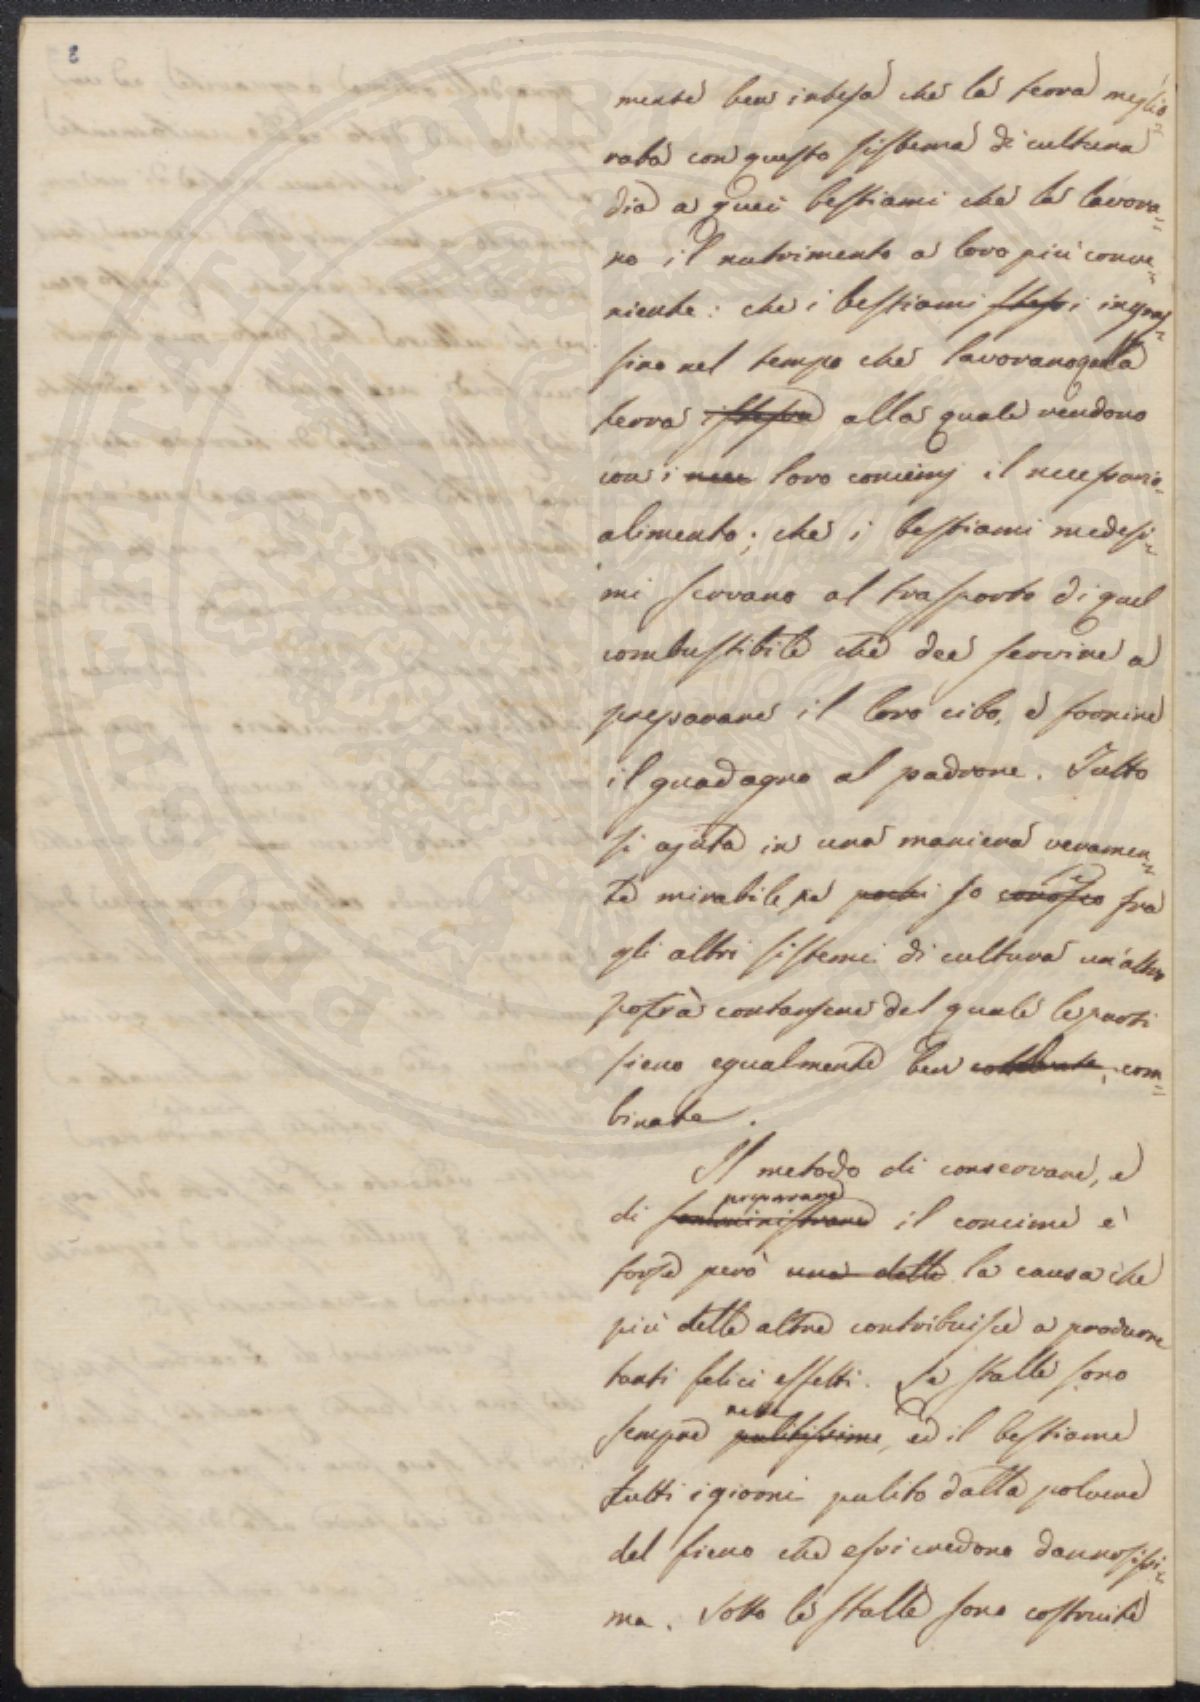 mente ben intesa che la terra meglio=
rata con questo sistema di cultura
dia a quei bestiami che la lavora=
no il nutrimento a loro più conve=
niente: che i bestiami stessi ingras=
sino nel tempo che lavorano quella
terra istessa alla quale rendono
con i loro concimj il necessario
alimento; che i bestiami medesi=
mi servano al trasporto di quel
combustibile che dee servire a
preparare il loro cibo, e fornire
il guadagno al padrone. Tutto
si ajuta in una maniera veramen=
te mirabile, ne pochi so conosco se fra
gli altri sistemi di cultura un'altro
potrà contarsene del quale le parti
sieno egualmente ben com=
binate.
Il metodo di conservare, e
preparare
di somministrare il concime è
forse però una delle la causa che
più delle altre contribuisce a produrre
tanti felici effetti. Le stalle sono
nette
sempre pulitissime, ed il bestiame
tutti i giorni pulito dalla polvere
del fieno che essi credono dannosissi=
ma. Sotto le stalle sono costruite